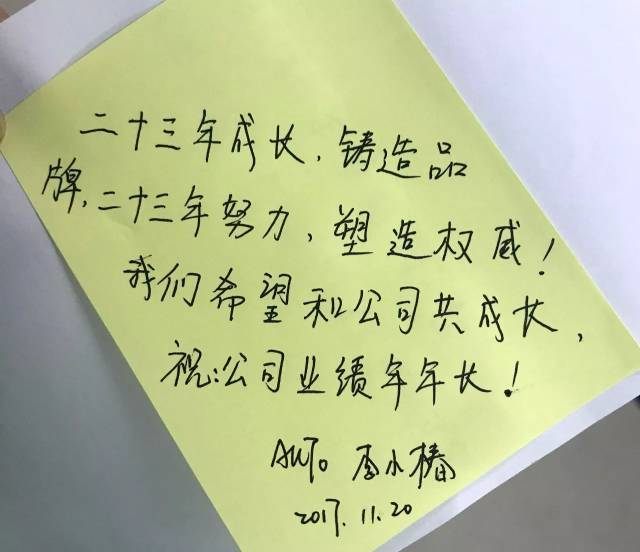 二十三年成长，铸造品
牌，二十三年努力，塑造权威！
我们希望和公司共成长，
祝：公司业绩年年长！
AUTO 李小椿
2017.11.20